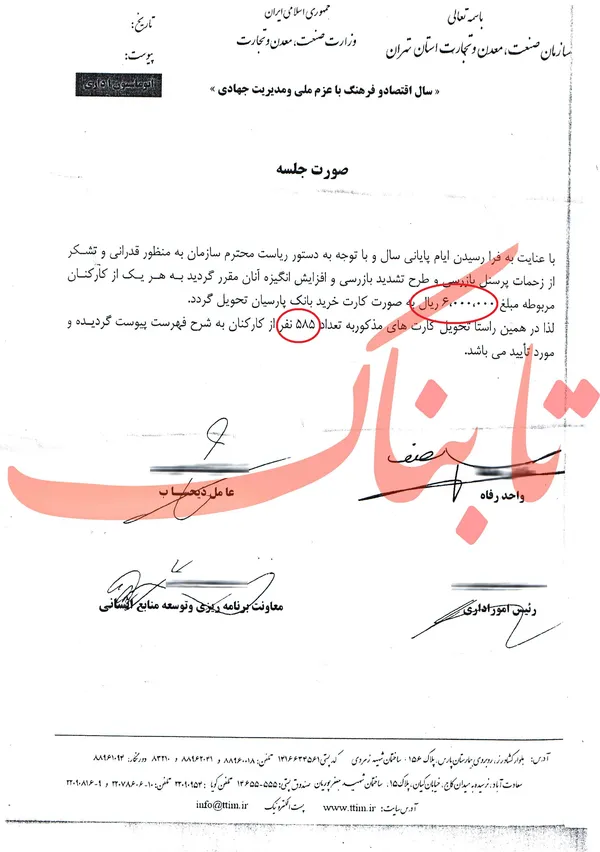 باسمه تعالی
جمهوری اسلامی ایران
وزارت صنعت، معدن و تجارت
سازمان صنعت، معدن و تجارت استان تهران
تاریخ:
پیوست:
اتوماسیون اداری
« سال اقتصاد و فرهنگ با عزم ملی و مدیریت جهادی »
صورت جلسه
با عنایت به فرا رسیدن ایام پایانی سال و با توجه به دستور ریاست محترم سازمان به منظور قدرانی و تشکر
از زحمات پرسنل بازرسی و طرح تشدید بازرسی و افزایش انگیزه آنان مقرر گردید به هر یک از کارکنان
مربوطه مبلغ ۶,۰۰۰,۰۰۰ ریال به صورت کارت خرید بانک پارسیان تحویل گردد.
لذا در همین راستا تحویل کارت های مذکوربه تعداد ۵۸۵ نفر از کارکنان به شرح فهرست پیوست گردیده و
مورد تأیید می باشد.
تابناک
واحد رفاه
عامل ذیحساب
رئیس امور اداری
معاونت برنامه ریزی وتوسعه منابع انسانی
آدرس: بلوار کشاورز، روبروی بیمارستان پارس، پلاک ۱۵۶، ساختمان شهید زمردی کدپستی: ۱۴۱۶۶۳۴۵۶۱ تلفن: ۸۸۹۶۰۰۱۸ و ۸۸۹۶۲۰۳۱ و ۸۳۲۱۰ دورنگار: ۸۸۹۶۱۰۹۳
سعادت آباد، نرسیده به میدان کاج، خیابان کیان، پلاک ۱۵، ساختمان شهید جعفر بویان صندوق پستی: ۵۵۵-۱۴۶۵۵ تلفن گویا: ۲۲۰۹۰۹۵۳ تلفن: ۱۰-۲۲۰۷۸۶۰۶ و ۹-۲۲۰۹۰۸۱۶
آدرس سایت: www.ttim.ir پست الکترونیک info@ttim.ir